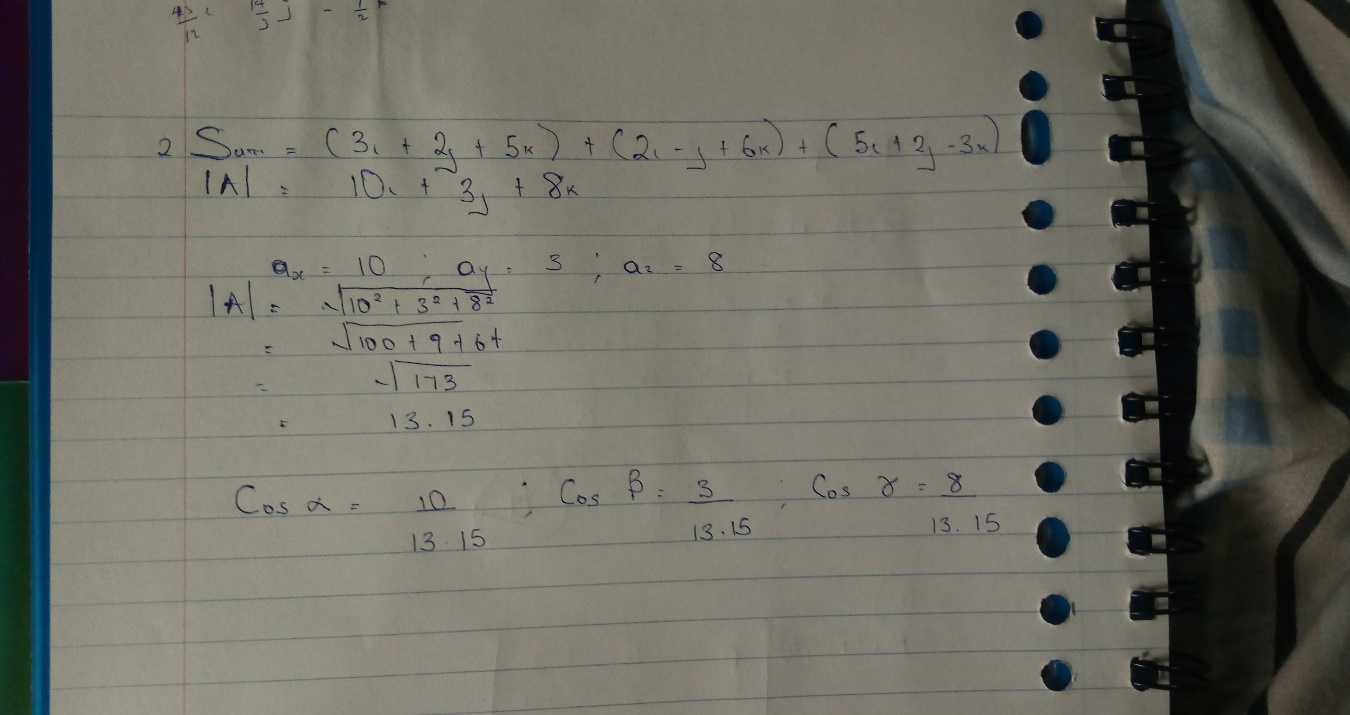 43/12 i 14/3 j - 1/2 k
2 Sum = (3i + 2j + 5k) + (2i - j + 6k) + (5i + 2j - 3k)
|A| = 10i + 3j + 8k
ax = 10 ; ay = 3 ; az = 8
|A| = √10² + 3² + 8²
= √100 + 9 + 64
= √173
= 13.15
Cos α = 10/13.15 ; Cos β = 3/13.15 ; Cos γ = 8/13.15